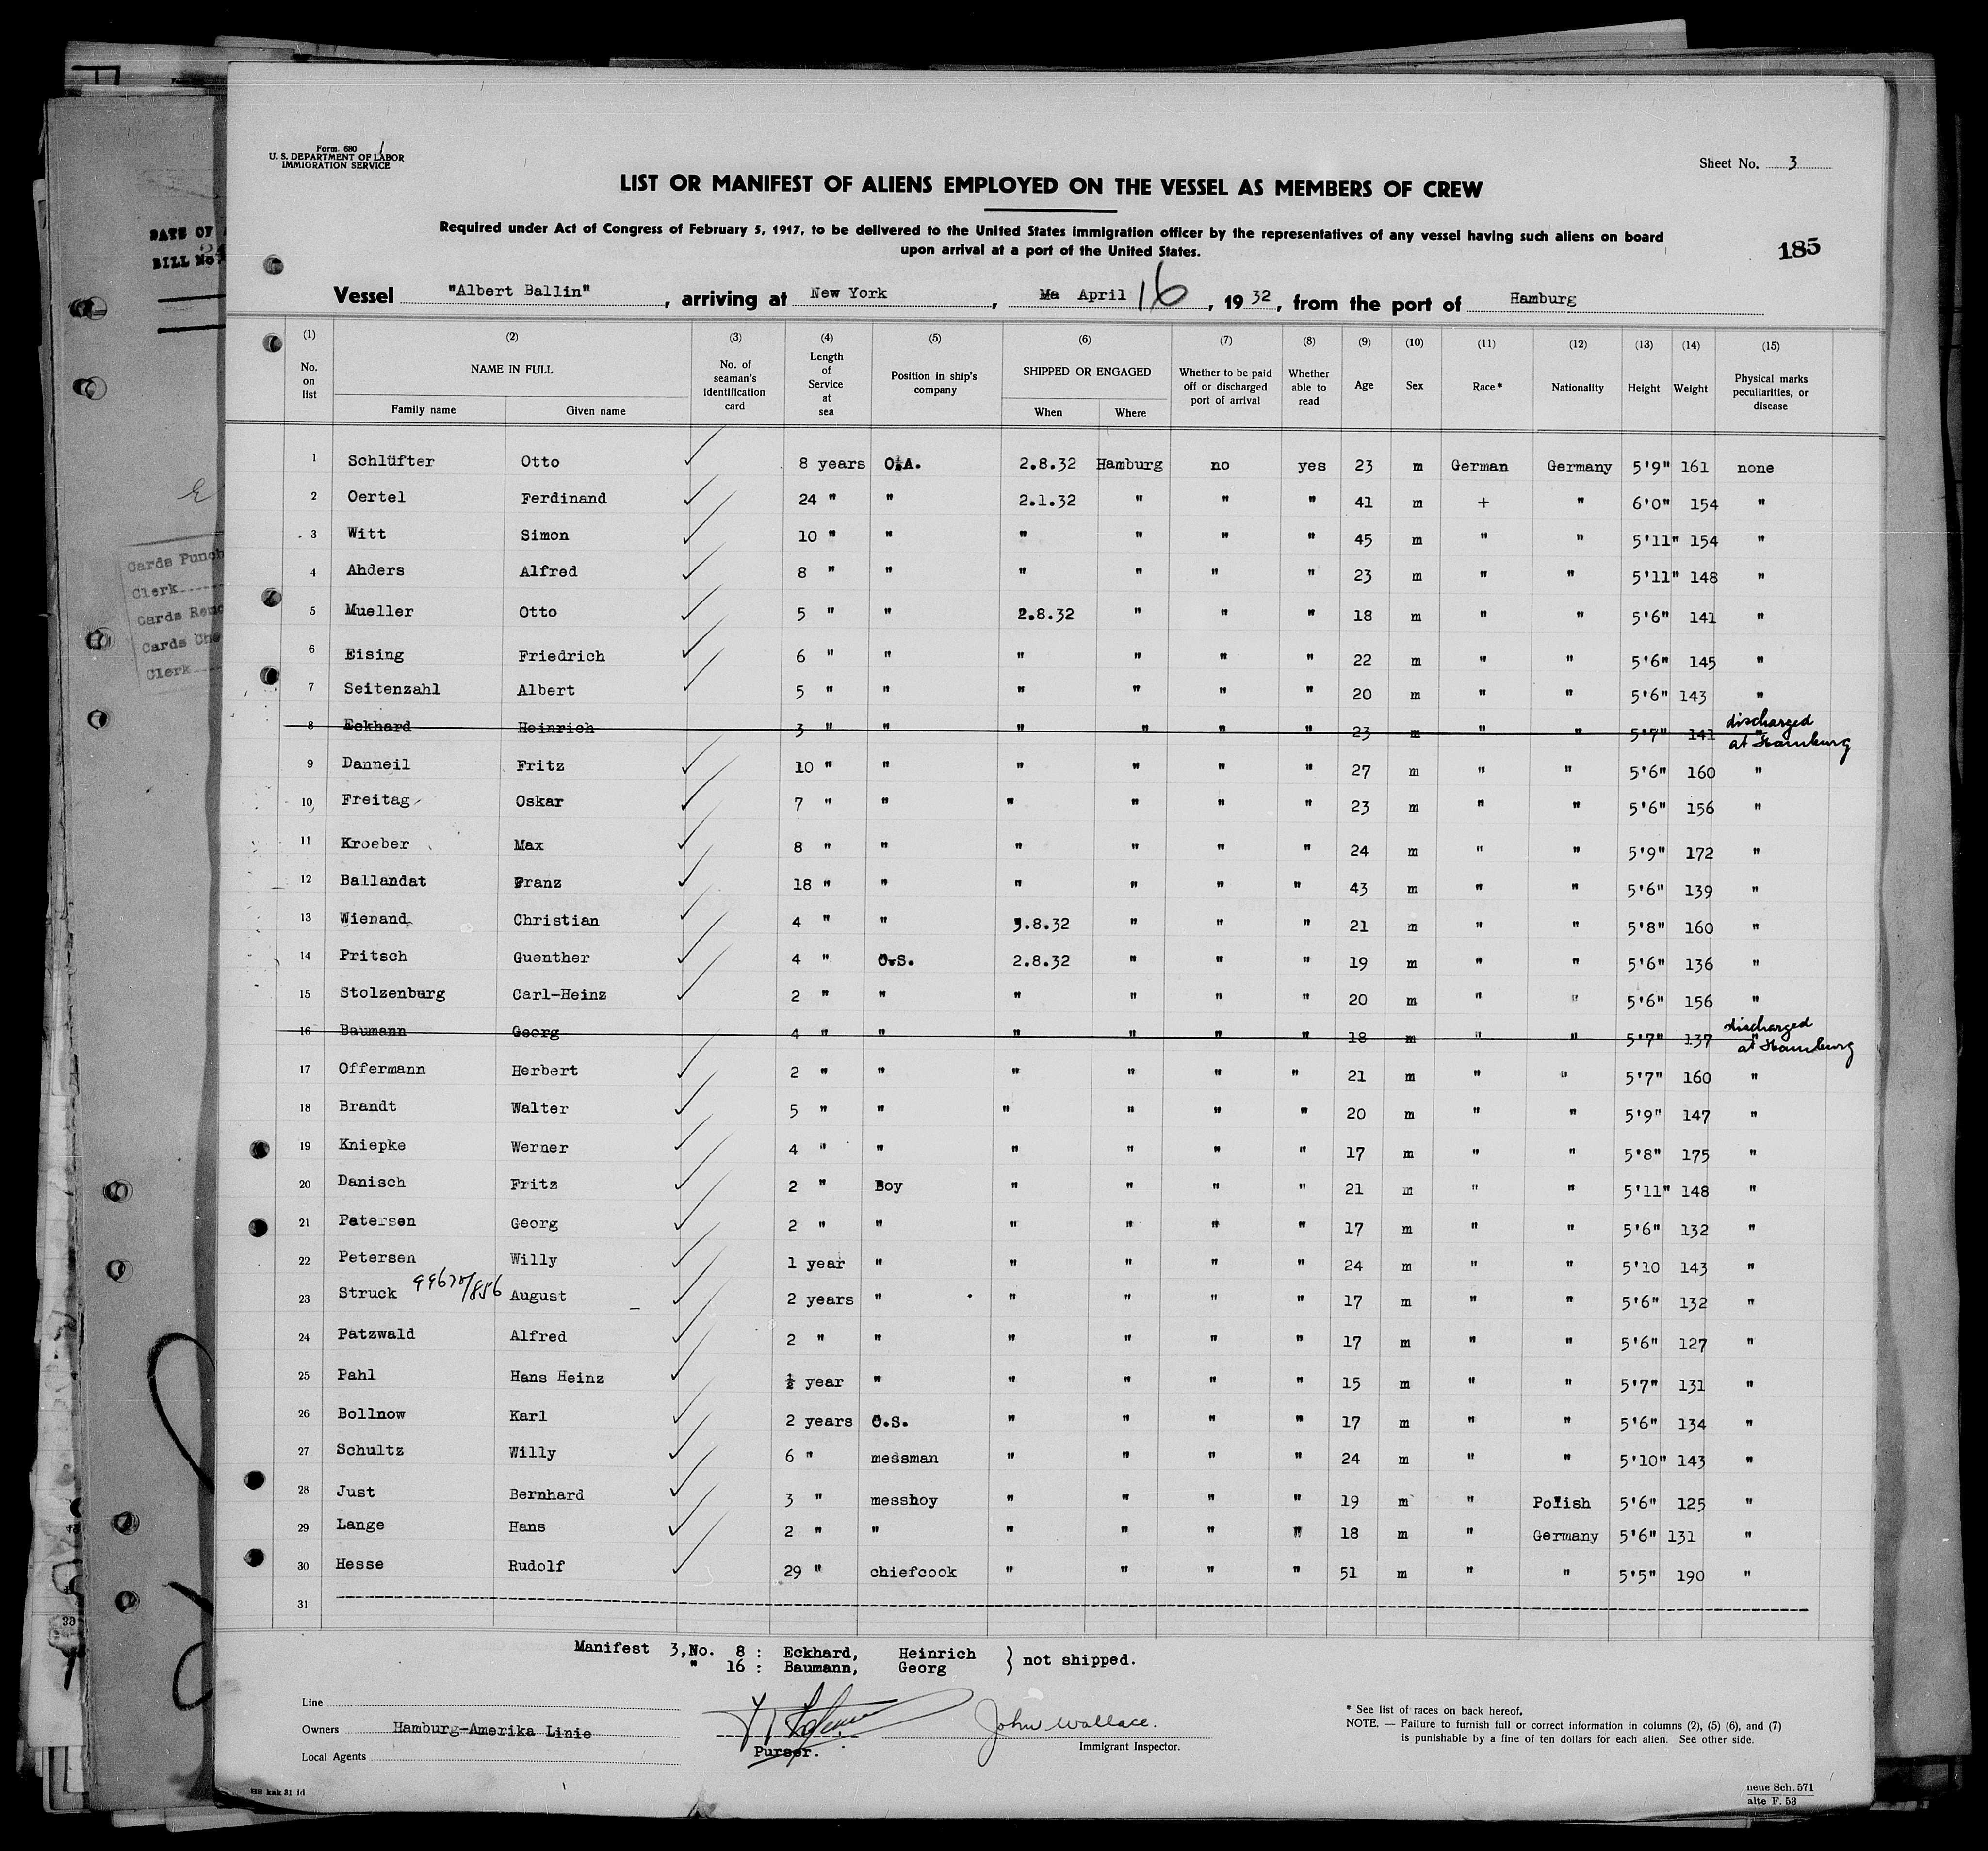 Form 680
U. S. DEPARTMENT OF LABOR
IMMIGRATION SERVICE
Sheet No. 3
LIST OR MANIFEST OF ALIENS EMPLOYED ON THE VESSEL AS MEMBERS OF CREW
Required under Act of Congress of February 5, 1917, to be delivered to the United States immigration officer by the representatives of any vessel having such aliens on board
upon arrival at a port of the United States.
185
DATE OF
BILL No
Vessel "Albert Ballin" , arriving at New York , Ma April 16 , 19 32, from the port of Hamburg
(1) (2) (3) (4) (5) (6) (7) (8) (9) (10) (11) (12) (13) (14) (15)
No. on list NAME IN FULL Family name Given name No. of seaman's identification card Length of Service at sea Position in ship's company SHIPPED OR ENGAGED When Where Whether to be paid off or discharged port of arrival Whether able to read Age Sex Race* Nationality Height Weight Physical marks peculiarities, or disease
1 Schlüfter Otto 8 years O.A. 2.8.32 Hamburg no yes 23 m German Germany 5'9" 161 none
2 Oertel Ferdinand 24 " " 2.1.32 " " " 41 m + " 6'0" 154 "
3 Witt Simon 10 " " " " " " 45 m " " 5'11" 154 "
4 Ahders Alfred 8 " " " " " " 23 m " " 5'11" 148 "
5 Mueller Otto 5 " " 2.8.32 " " " 18 m " " 5'6" 141 "
6 Eising Friedrich 6 " " " " " " 22 m " " 5'6" 145 "
7 Seitenzahl Albert 5 " " " " " " 20 m " " 5'6" 143 "
8 Eckhard Heinrich 3 " " " " " " 23 m " " 5'7" 141 " discharged at Hamburg
9 Danneil Fritz 10 " " " " " " 27 m " " 5'6" 160 "
10 Freitag Oskar 7 " " " " " " 23 m " " 5'6" 156 "
11 Kroeber Max 8 " " " " " " 24 m " " 5'9" 172 "
12 Ballandat Franz 18 " " " " " " 43 m " " 5'6" 139 "
13 Wienand Christian 4 " " 3.8.32 " " " 21 m " " 5'8" 160 "
14 Pritsch Guenther 4 " O.S. 2.8.32 " " " 19 m " " 5'6" 136 "
15 Stolzenburg Carl-Heinz 2 " " " " " " 20 m " " 5'6" 156 "
16 Baumann Georg 4 " " " " " " 18 m " " 5'7" 137 " discharged at Hamburg
17 Offermann Herbert 2 " " " " " " 21 m " " 5'7" 160 "
18 Brandt Walter 5 " " " " " " 20 m " " 5'9" 147 "
19 Kniepke Werner 4 " " " " " " 17 m " " 5'8" 175 "
20 Danisch Fritz 2 " Boy " " " " 21 m " " 5'11" 148 "
21 Patersen Georg 2 " " " " " " 17 m " " 5'6" 132 "
22 Petersen Willy 1 year " " " " " 24 m " " 5'10 143 "
23 Struck 99670/856 August 2 years " " " " " 17 m " " 5'6" 132 "
24 Patzwald Alfred 2 " " " " " " 17 m " " 5'6" 127 "
25 Pahl Hans Heinz ½ year " " " " " 15 m " " 5'7" 131 "
26 Bollnow Karl 2 years O.S. " " " " 17 m " " 5'6" 134 "
27 Schultz Willy 6 " messman " " " " 24 m " " 5'10" 143 "
28 Just Bernhard 3 " messboy " " " " 19 m " Polish 5'6" 125 "
29 Lange Hans 2 " " " " " " 18 m " Germany 5'6" 131 "
30 Hesse Rudolf 29 " chiefcook " " " " 51 m " " 5'5" 190 "
31
Manifest 3,No. 8 : Eckhard, Heinrich } not shipped.
" 16 : Baumann, Georg
Line
Owners Hamburg-Amerika Linie
Local Agents
Purser.
John Wallace.
Immigrant Inspector.
* See list of races on back hereof.
NOTE. — Failure to furnish full or correct information in columns (2), (5) (6), and (7)
is punishable by a fine of ten dollars for each alien. See other side.
HS kak 31 fd
neue Sch. 571
alte F. 53
Cards Punch
Clerk
Cards Remo
Cards Che
Clerk